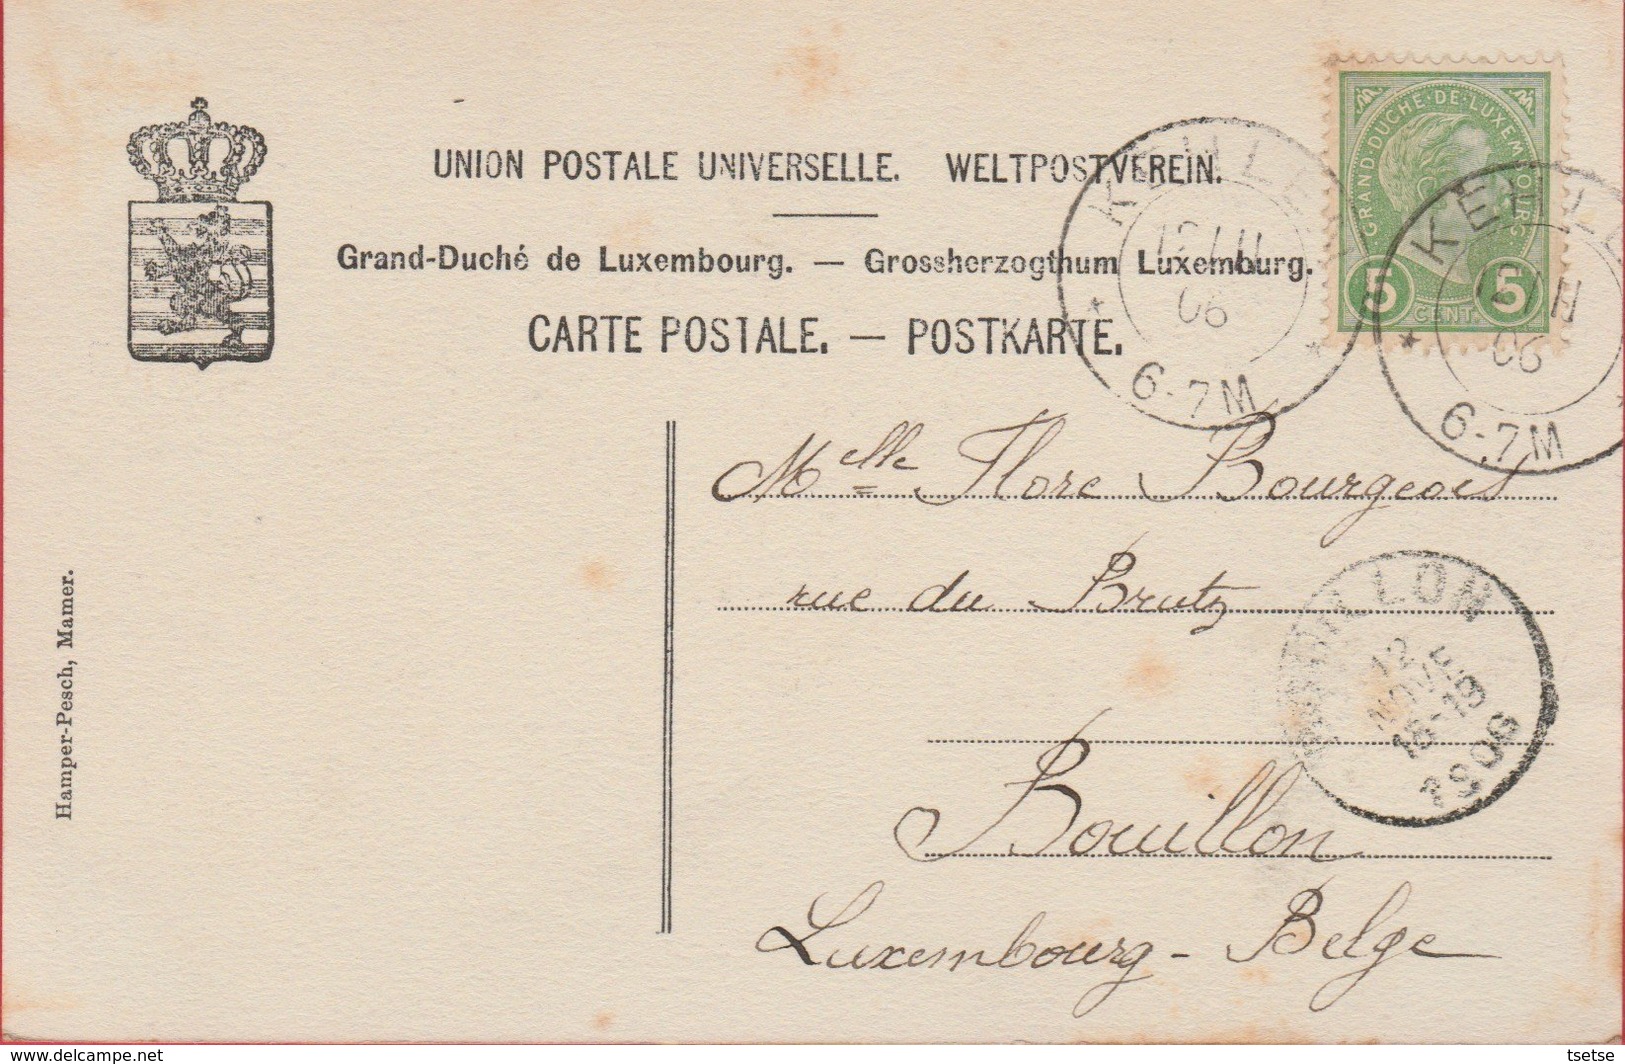 UNION POSTALE UNIVERSELLE. WELTPOSTVEREIN.
Grand-Duché de Luxembourg. — Grossherzogthum Luxemburg.
CARTE POSTALE. — POSTKARTE.
GRAND-DUCHÉ·DE·LUXEMBOURG
5 CENT. 5
KEHLEN
12/11
06
6-7M
KEHLEN
12/11
06
6-7M
Melle Flore Bourgeois
rue du Brutz
Bouillon
Luxembourg - Belge
BOUILLON
12
NOVE
18-19
1906
Hamper-Pesch, Mamer.
www.delcampe.net
tsetse